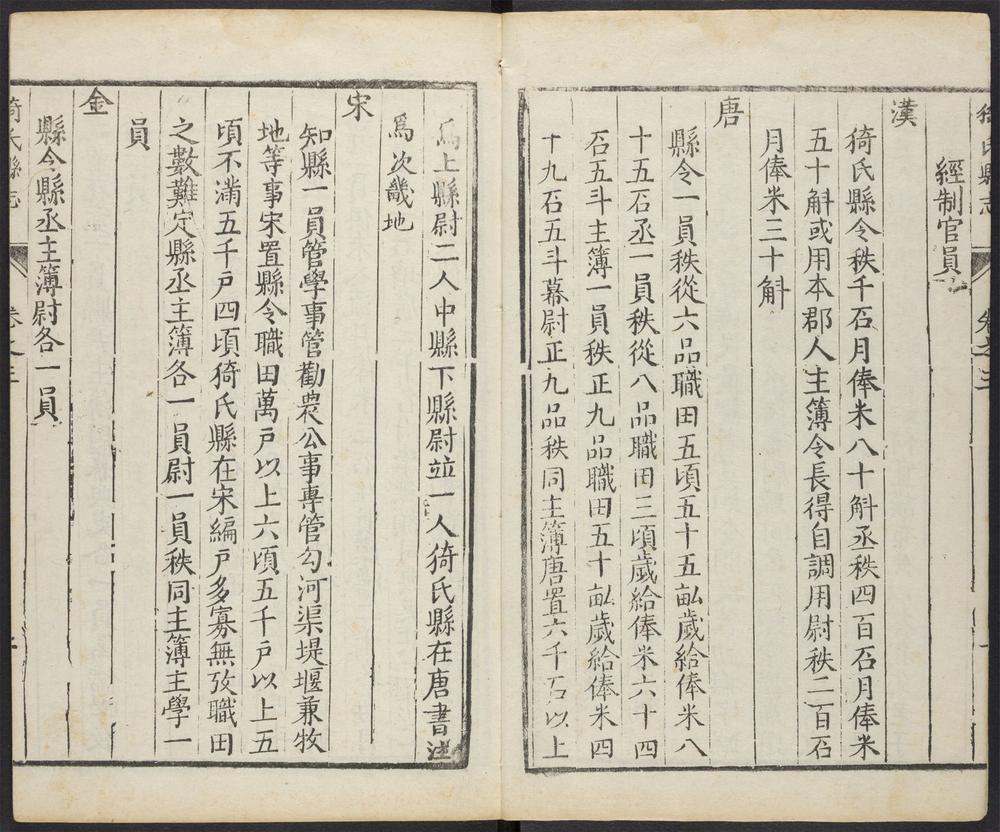 猗氏縣志 卷之三
經制官員
漢
猗氏縣令秩千石月俸米八十斛丞秩四百石月俸米
五十斛或用本郡人主簿令長得自調用尉秩二百石
月俸米三十斛
唐
縣令一員秩從六品職田五頃五十五畝歲給俸米八
十五石丞一員秩從八品職田三頃歲給俸米六十四
石五斗主簿一員秩正九品職田五十畝歲給俸米四
十九石五斗幕尉正九品秩同主簿唐置六千石以上
爲上縣尉二人中縣下縣尉竝一人猗氏縣在唐書注
爲次畿地
宋
知縣一員管學事管勸農公事專管勾河渠堤堰兼牧
地等事宋置縣令職田萬戸以上六頃五千戸以上五
頃不滿五千戸四頃猗氏縣在宋編戸多寡無攷職田
之數難定縣丞主簿各一員尉一員秩同主簿主學一
員
金
縣令縣丞主簿尉各一員
猗氏縣志 卷之三